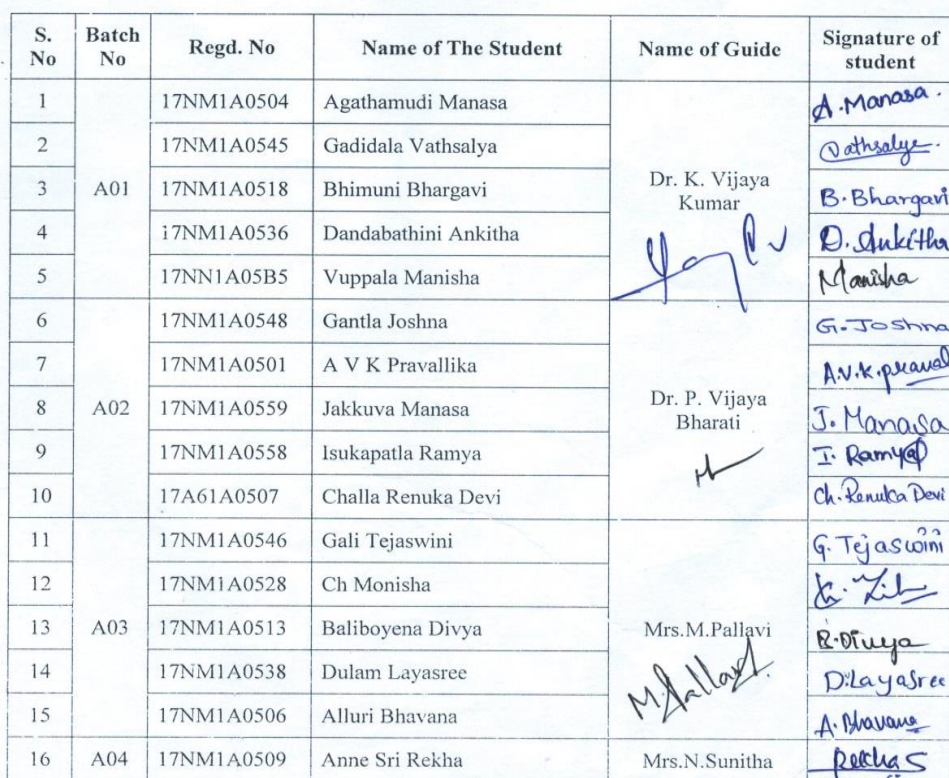 S. No Batch No Regd. No Name of The Student Name of Guide Signature of student
1 17NM1A0504 Agathamudi Manasa A.Manasa.
2 17NM1A0545 Gadidala Vathsalya Vathsalya.
3 A01 17NM1A0518 Bhimuni Bhargavi Dr. K. Vijaya Kumar B.Bhargavi
4 17NM1A0536 Dandabathini Ankitha D.Ankitha
5 17NN1A05B5 Vuppala Manisha Manisha
6 17NM1A0548 Gantla Joshna G.Joshna
7 17NM1A0501 A V K Pravallika A.V.K.praval
8 A02 17NM1A0559 Jakkuva Manasa Dr. P. Vijaya Bharati J.Manasa
9 17NM1A0558 Isukapatla Ramya I.Ramya
10 17A61A0507 Challa Renuka Devi Ch.Renuka Devi
11 17NM1A0546 Gali Tejaswini G.Tejaswini
12 17NM1A0528 Ch Monisha
13 A03 17NM1A0513 Baliboyena Divya Mrs.M.Pallavi B.Divya
14 17NM1A0538 Dulam Layasree M.Pallavi D.Layasree
15 17NM1A0506 Alluri Bhavana A.Bhavana
16 A04 17NM1A0509 Anne Sri Rekha Mrs.N.Sunitha Rekha S